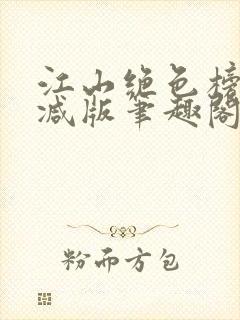 江山绝色榜
减版笔趣阁
粉而方包